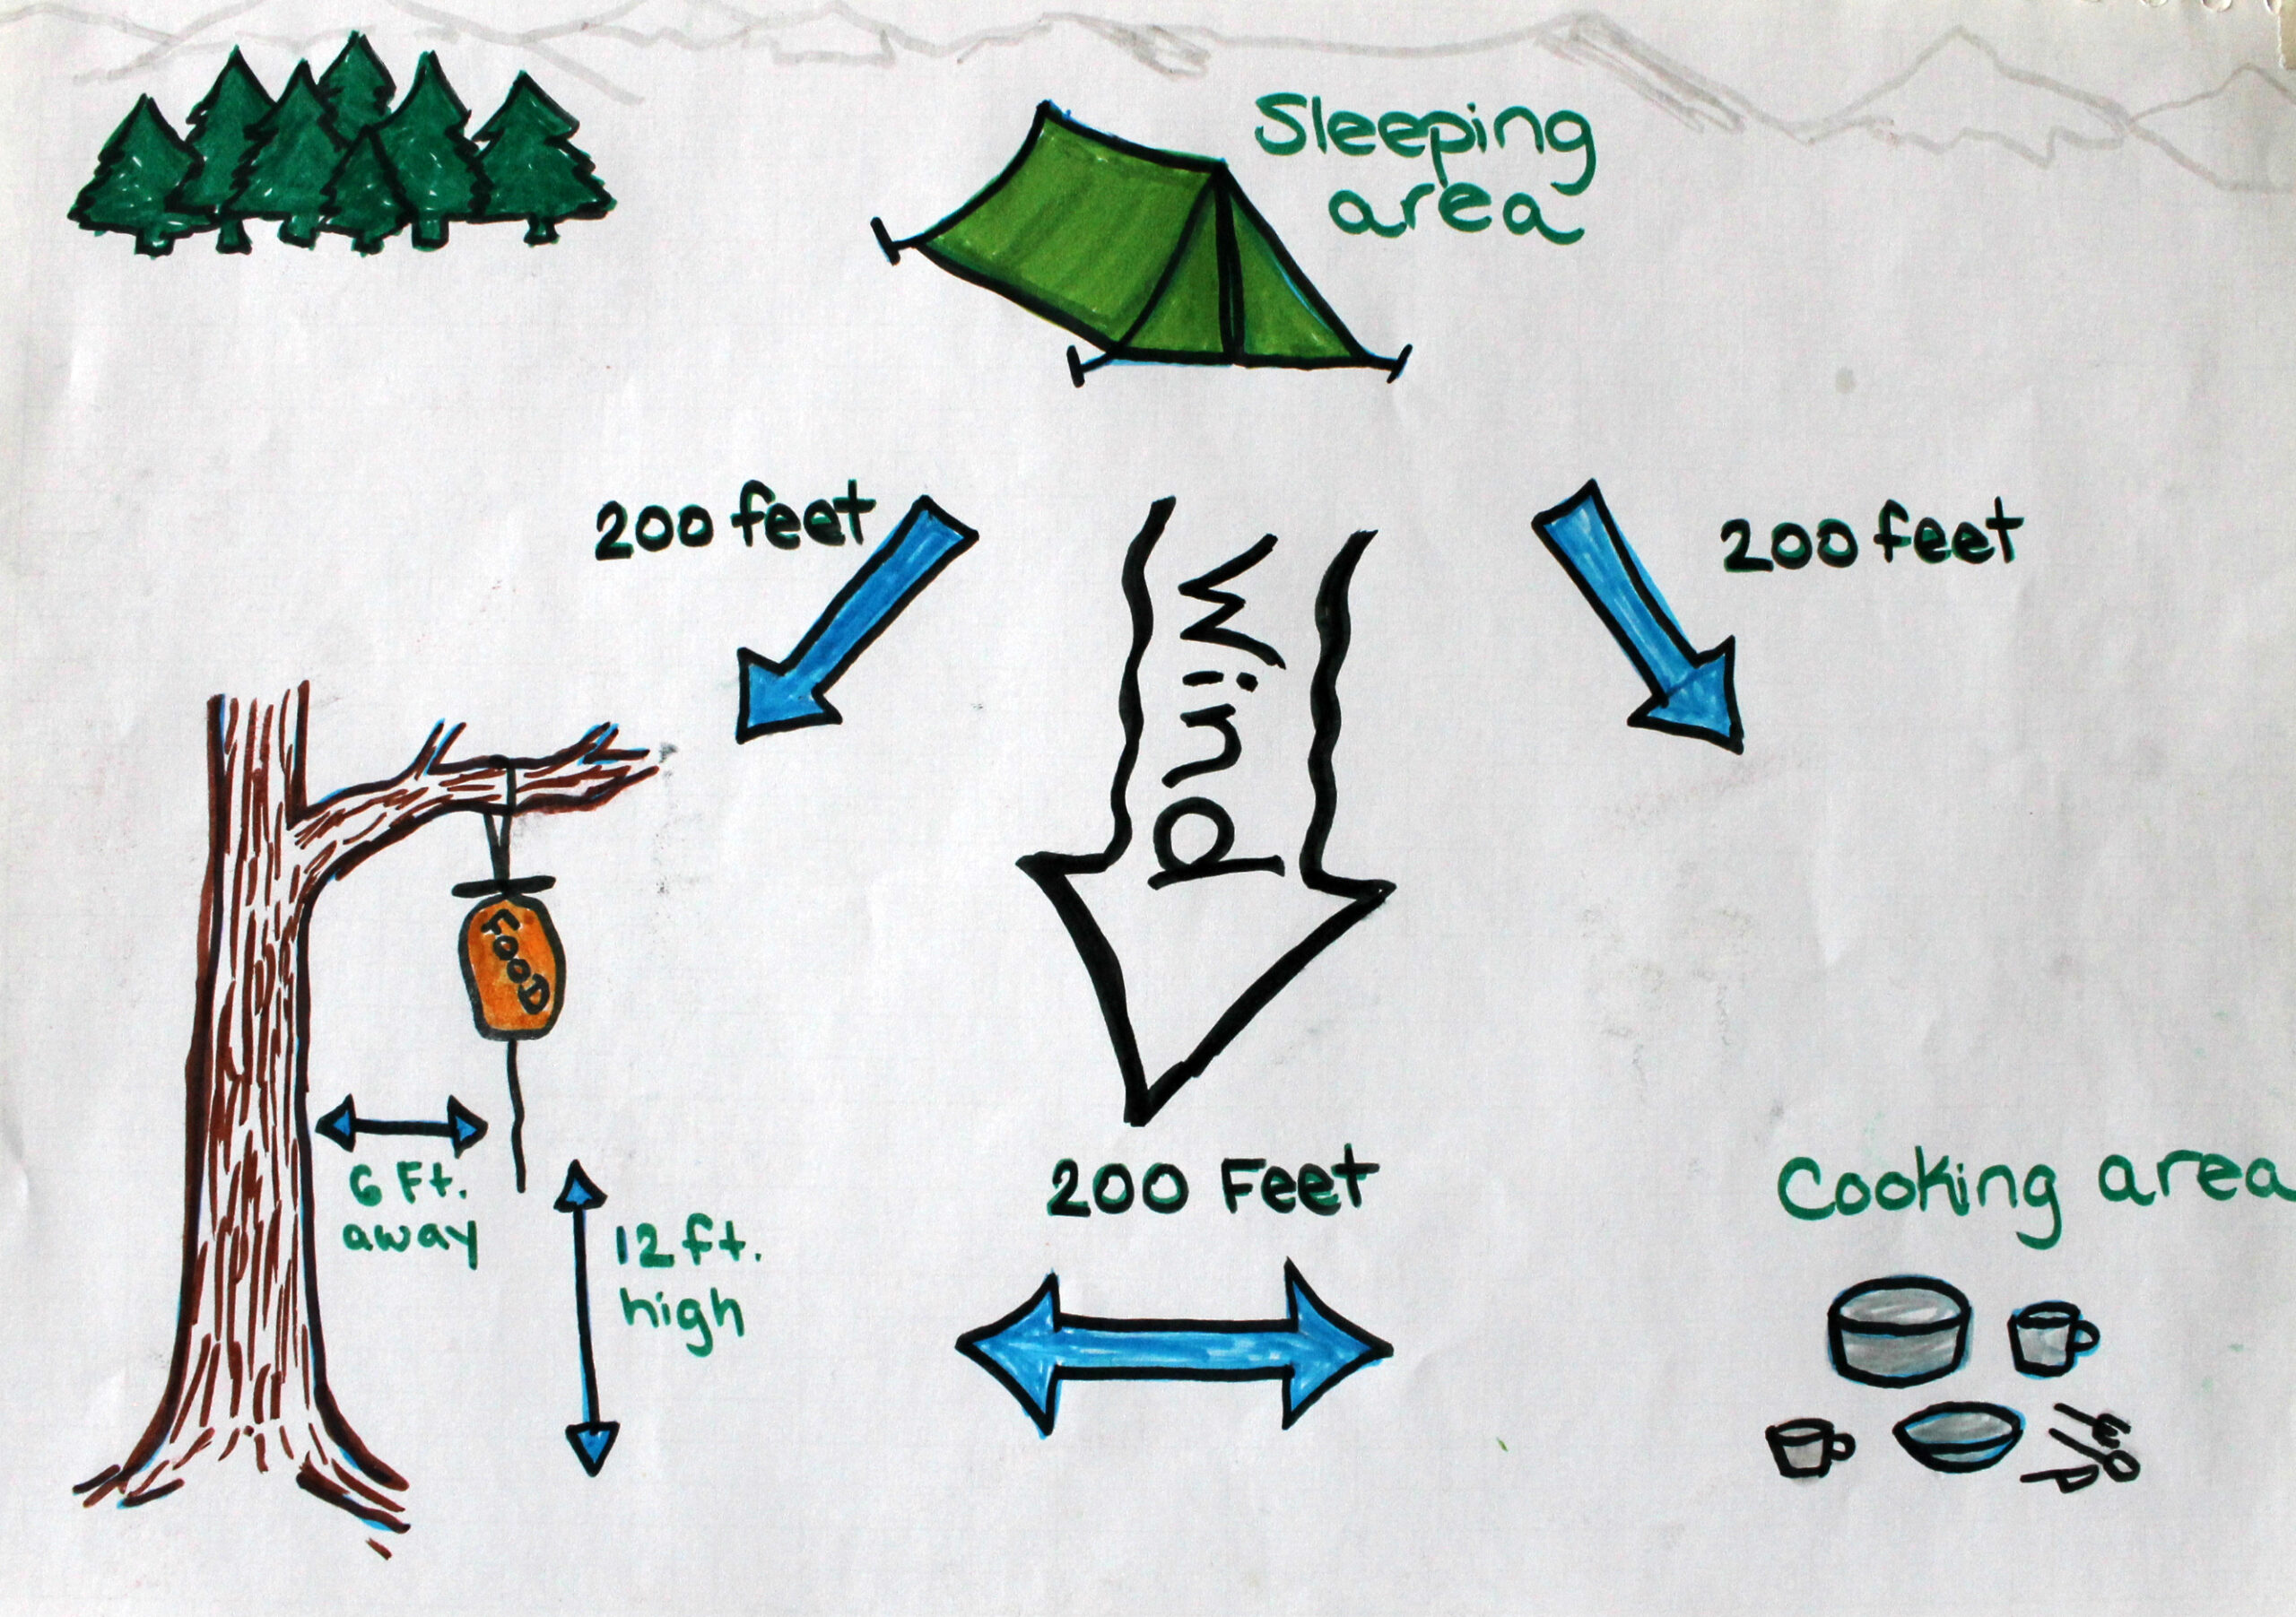 Sleeping
area
200 feet
200 feet
Wind
FOOD
6 Ft.
away
12 ft.
high
200 Feet
Cooking area